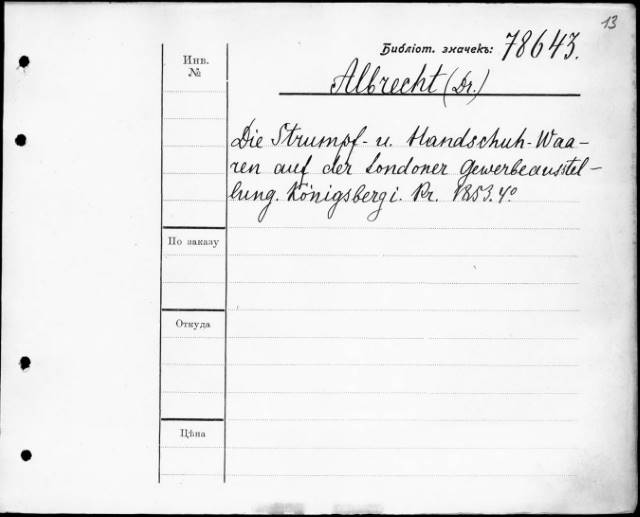 13
Библіот. значекъ: 78643.
Инв.
№
Albrecht (Dr.)
Die Strumpf- u. Handschuh-Waa-
ren auf der Londoner Gewerbeausstel-
lung. Königsberg i. Pr. 1853. 4º
По заказу
Откуда
Цѣна